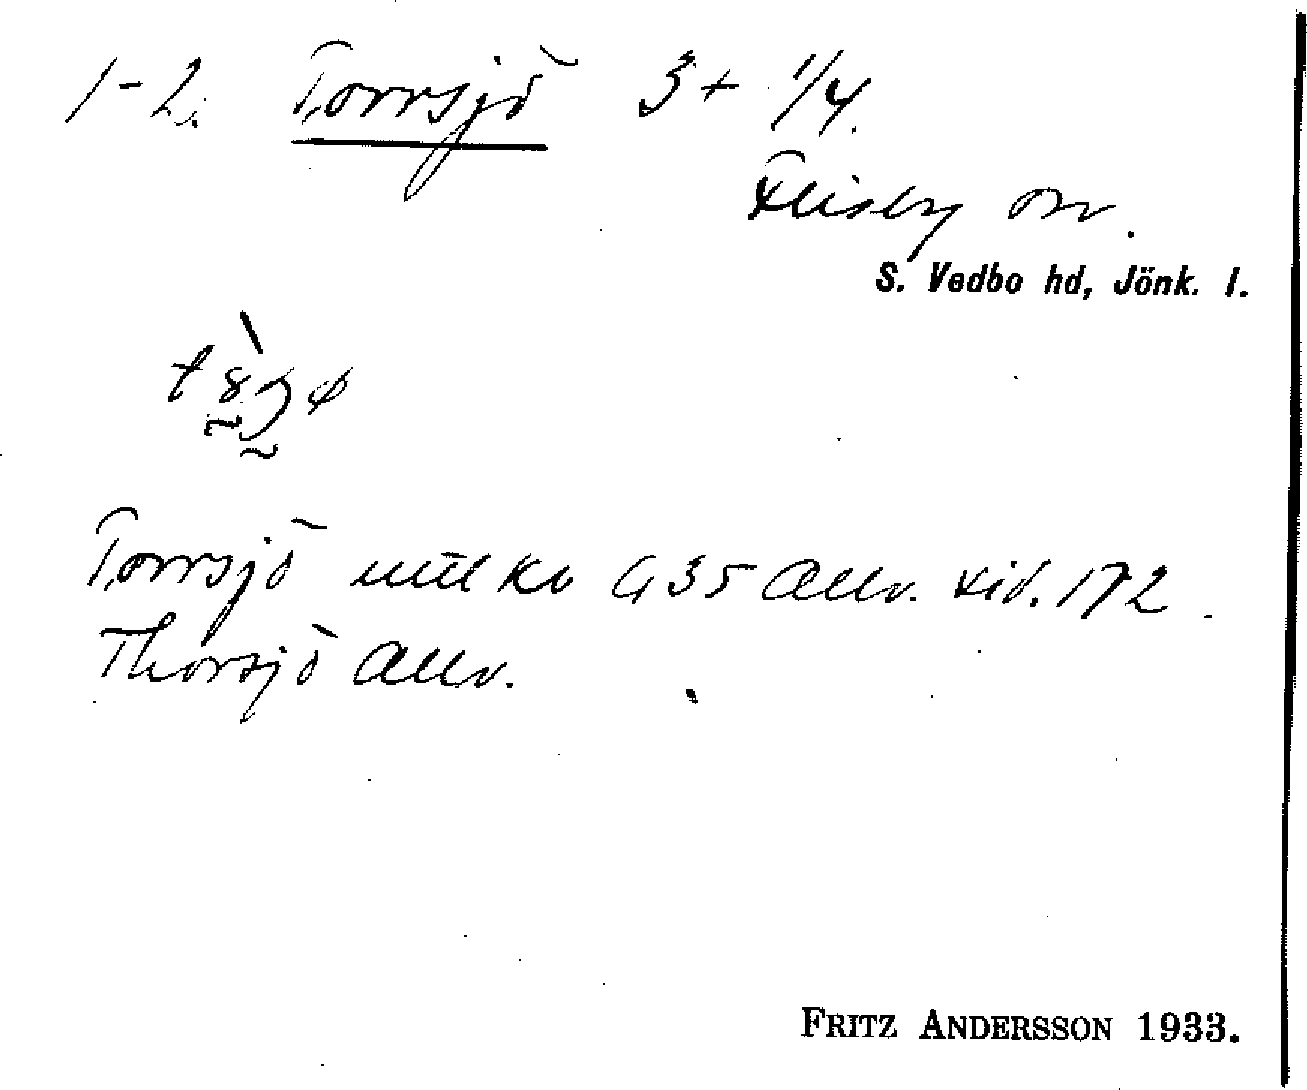 1-2. Torrsjö 3+ 1/4.
Flisby sn.
S. Vedbo hd, Jönk. l.
Torrsjö G 35 Allm. tid. 172
Thorsjö Allm.
FRITZ ANDERSSON 1933.